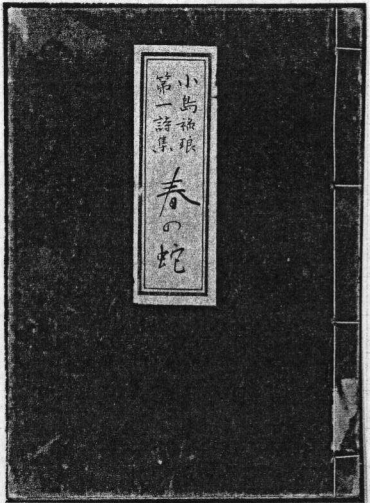 小島禄琅
第一詩集
春の蛇